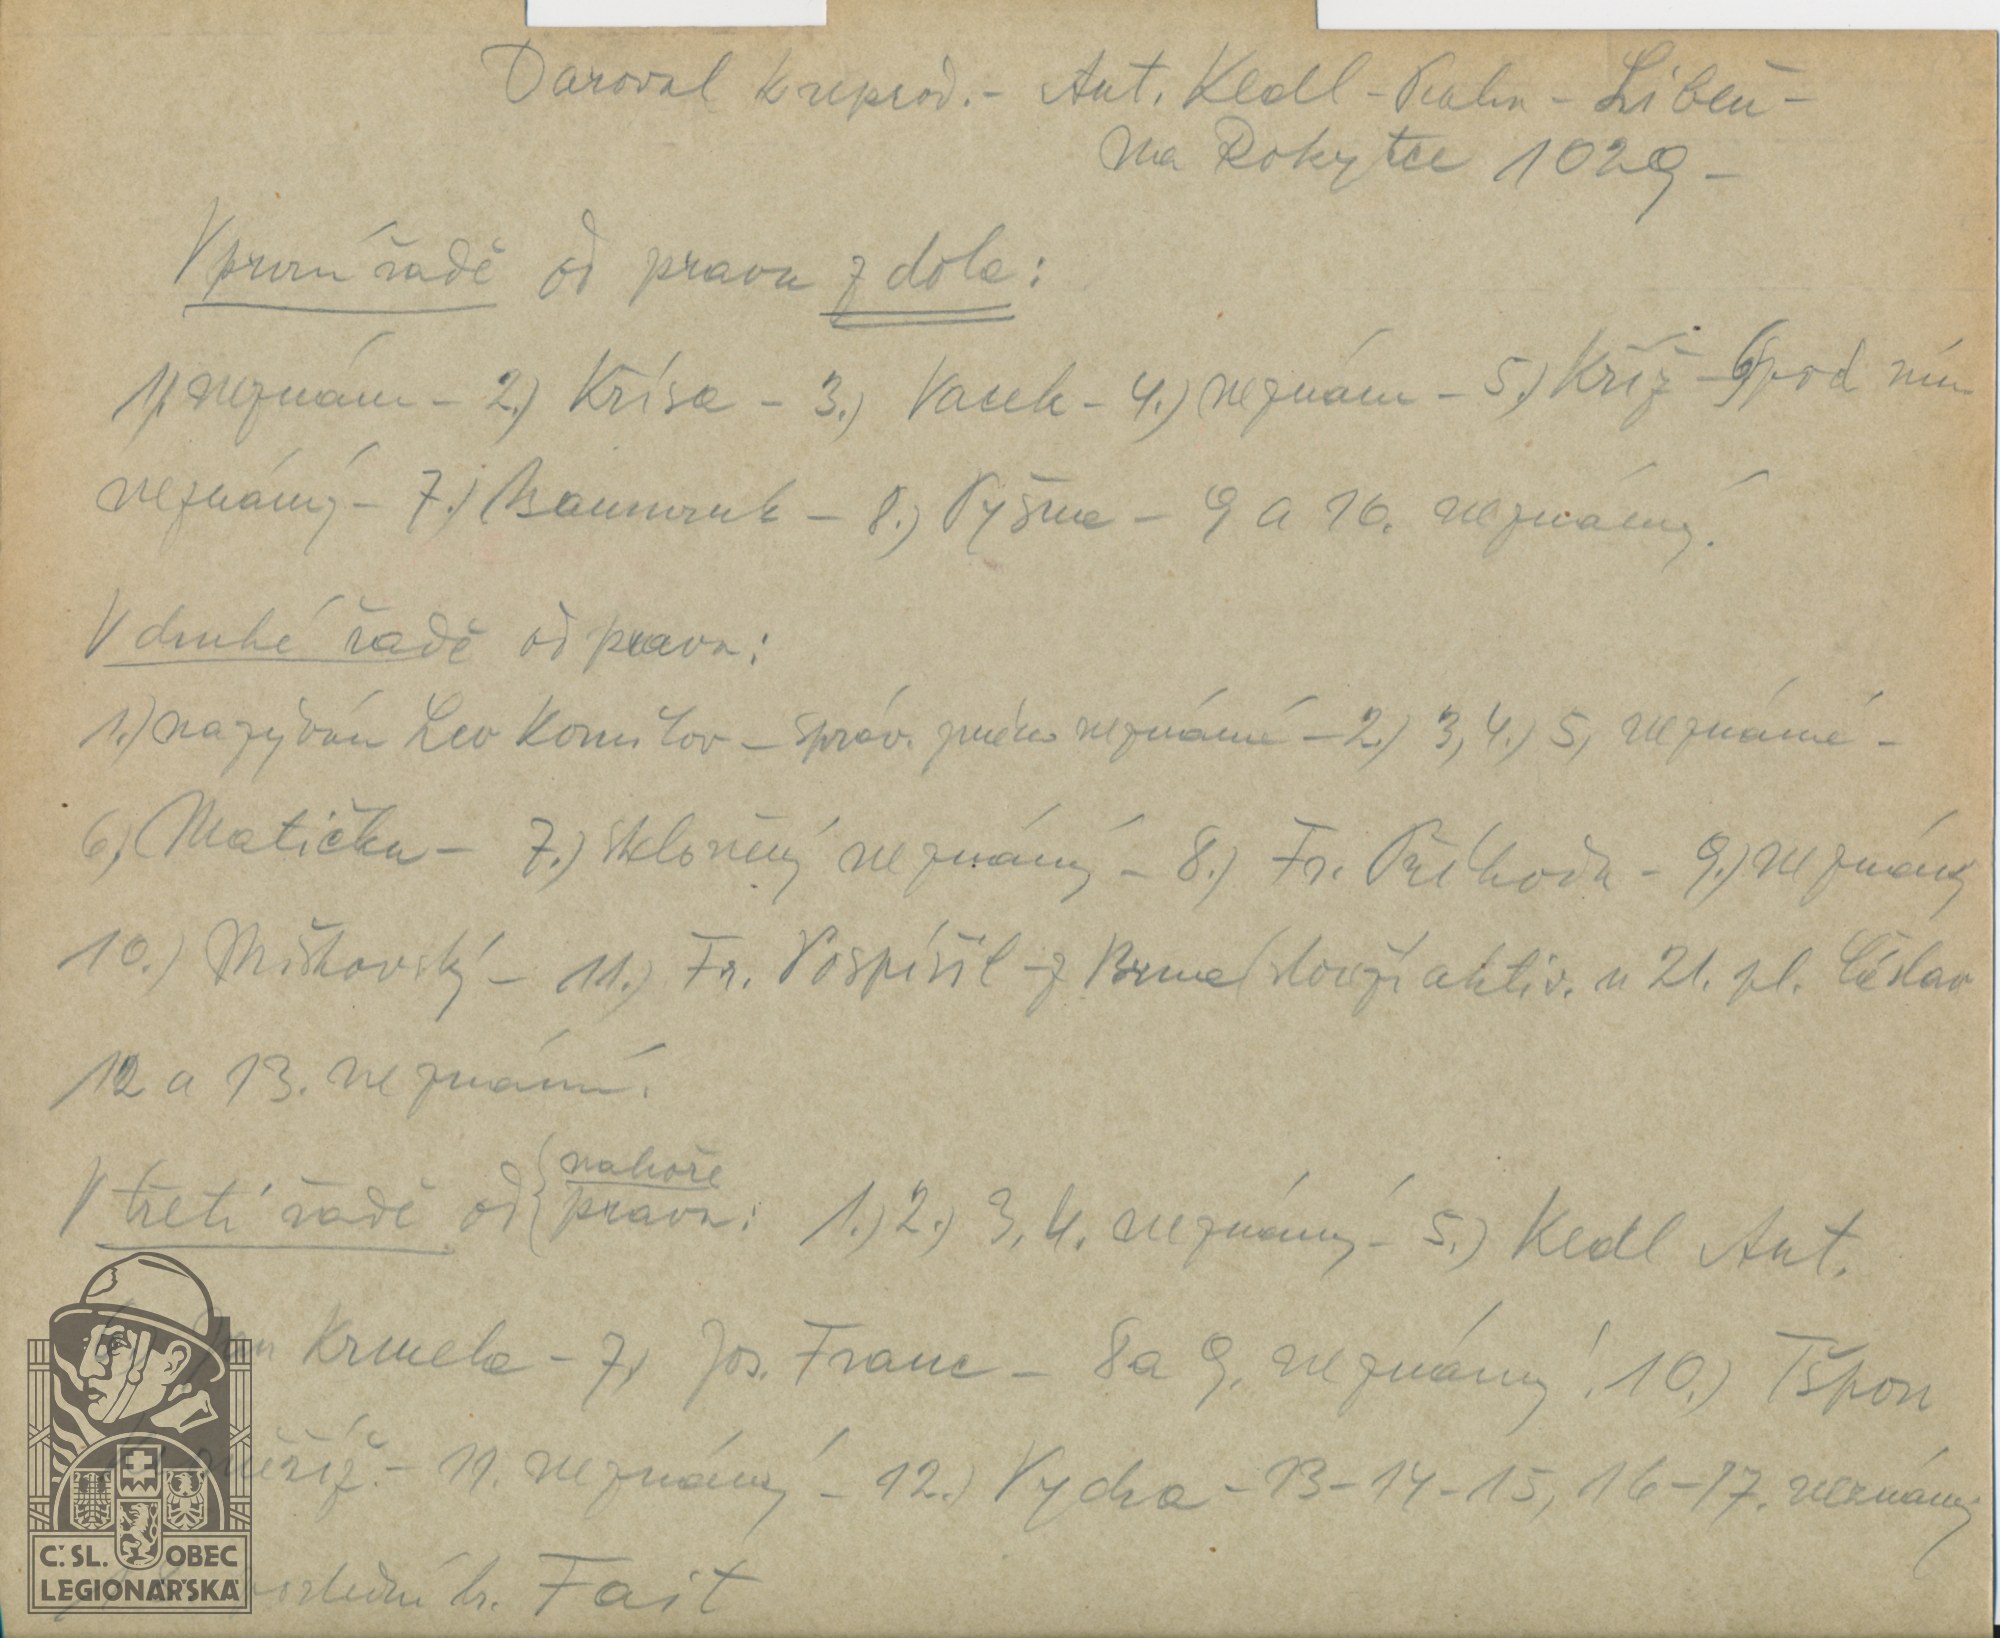 Daroval k reprod. - Ant. Kedl - Praha - Libeň -
na Rokytce 1029 -
V první řadě od prava z dola:
1) neznám - 2.) Křísa - 3.) Vacek - 4.) neznám - 5.) Kříž - 6) pod ním
neznámý - 7.) Baumruk - 8.) Vyšna - 9 a 10. neznámý.
V druhé řadě od prava:
1.) nazýván Lev Kornilov - správ. jméno neznámé - 2.) 3, 4.) 5, neznámé -
6, Matička - 7.) skloněný neznámý - 8.) Fr. Příhoda - 9.) neznámý
10.) Miškovský - 11.) Fr. Pospíšil - z Brna (slouží aktiv. u 21. pl. Čáslav
12 a 13. neznámí.
nahoře
V třetí řadě od prava: 1.) 2.) 3, 4. neznámý - 5.) Kedl Ant.
Jan Krmela - 7, Jos. Franc - 8 a 9, neznámý! 10.) Tšpon
- 11. neznámý - 12.) Vydra - 13 - 14 - 15, 16 - 17. neznámý
poslední br. Fait
Č.SL. OBEC
LEGIONÁŘSKÁ